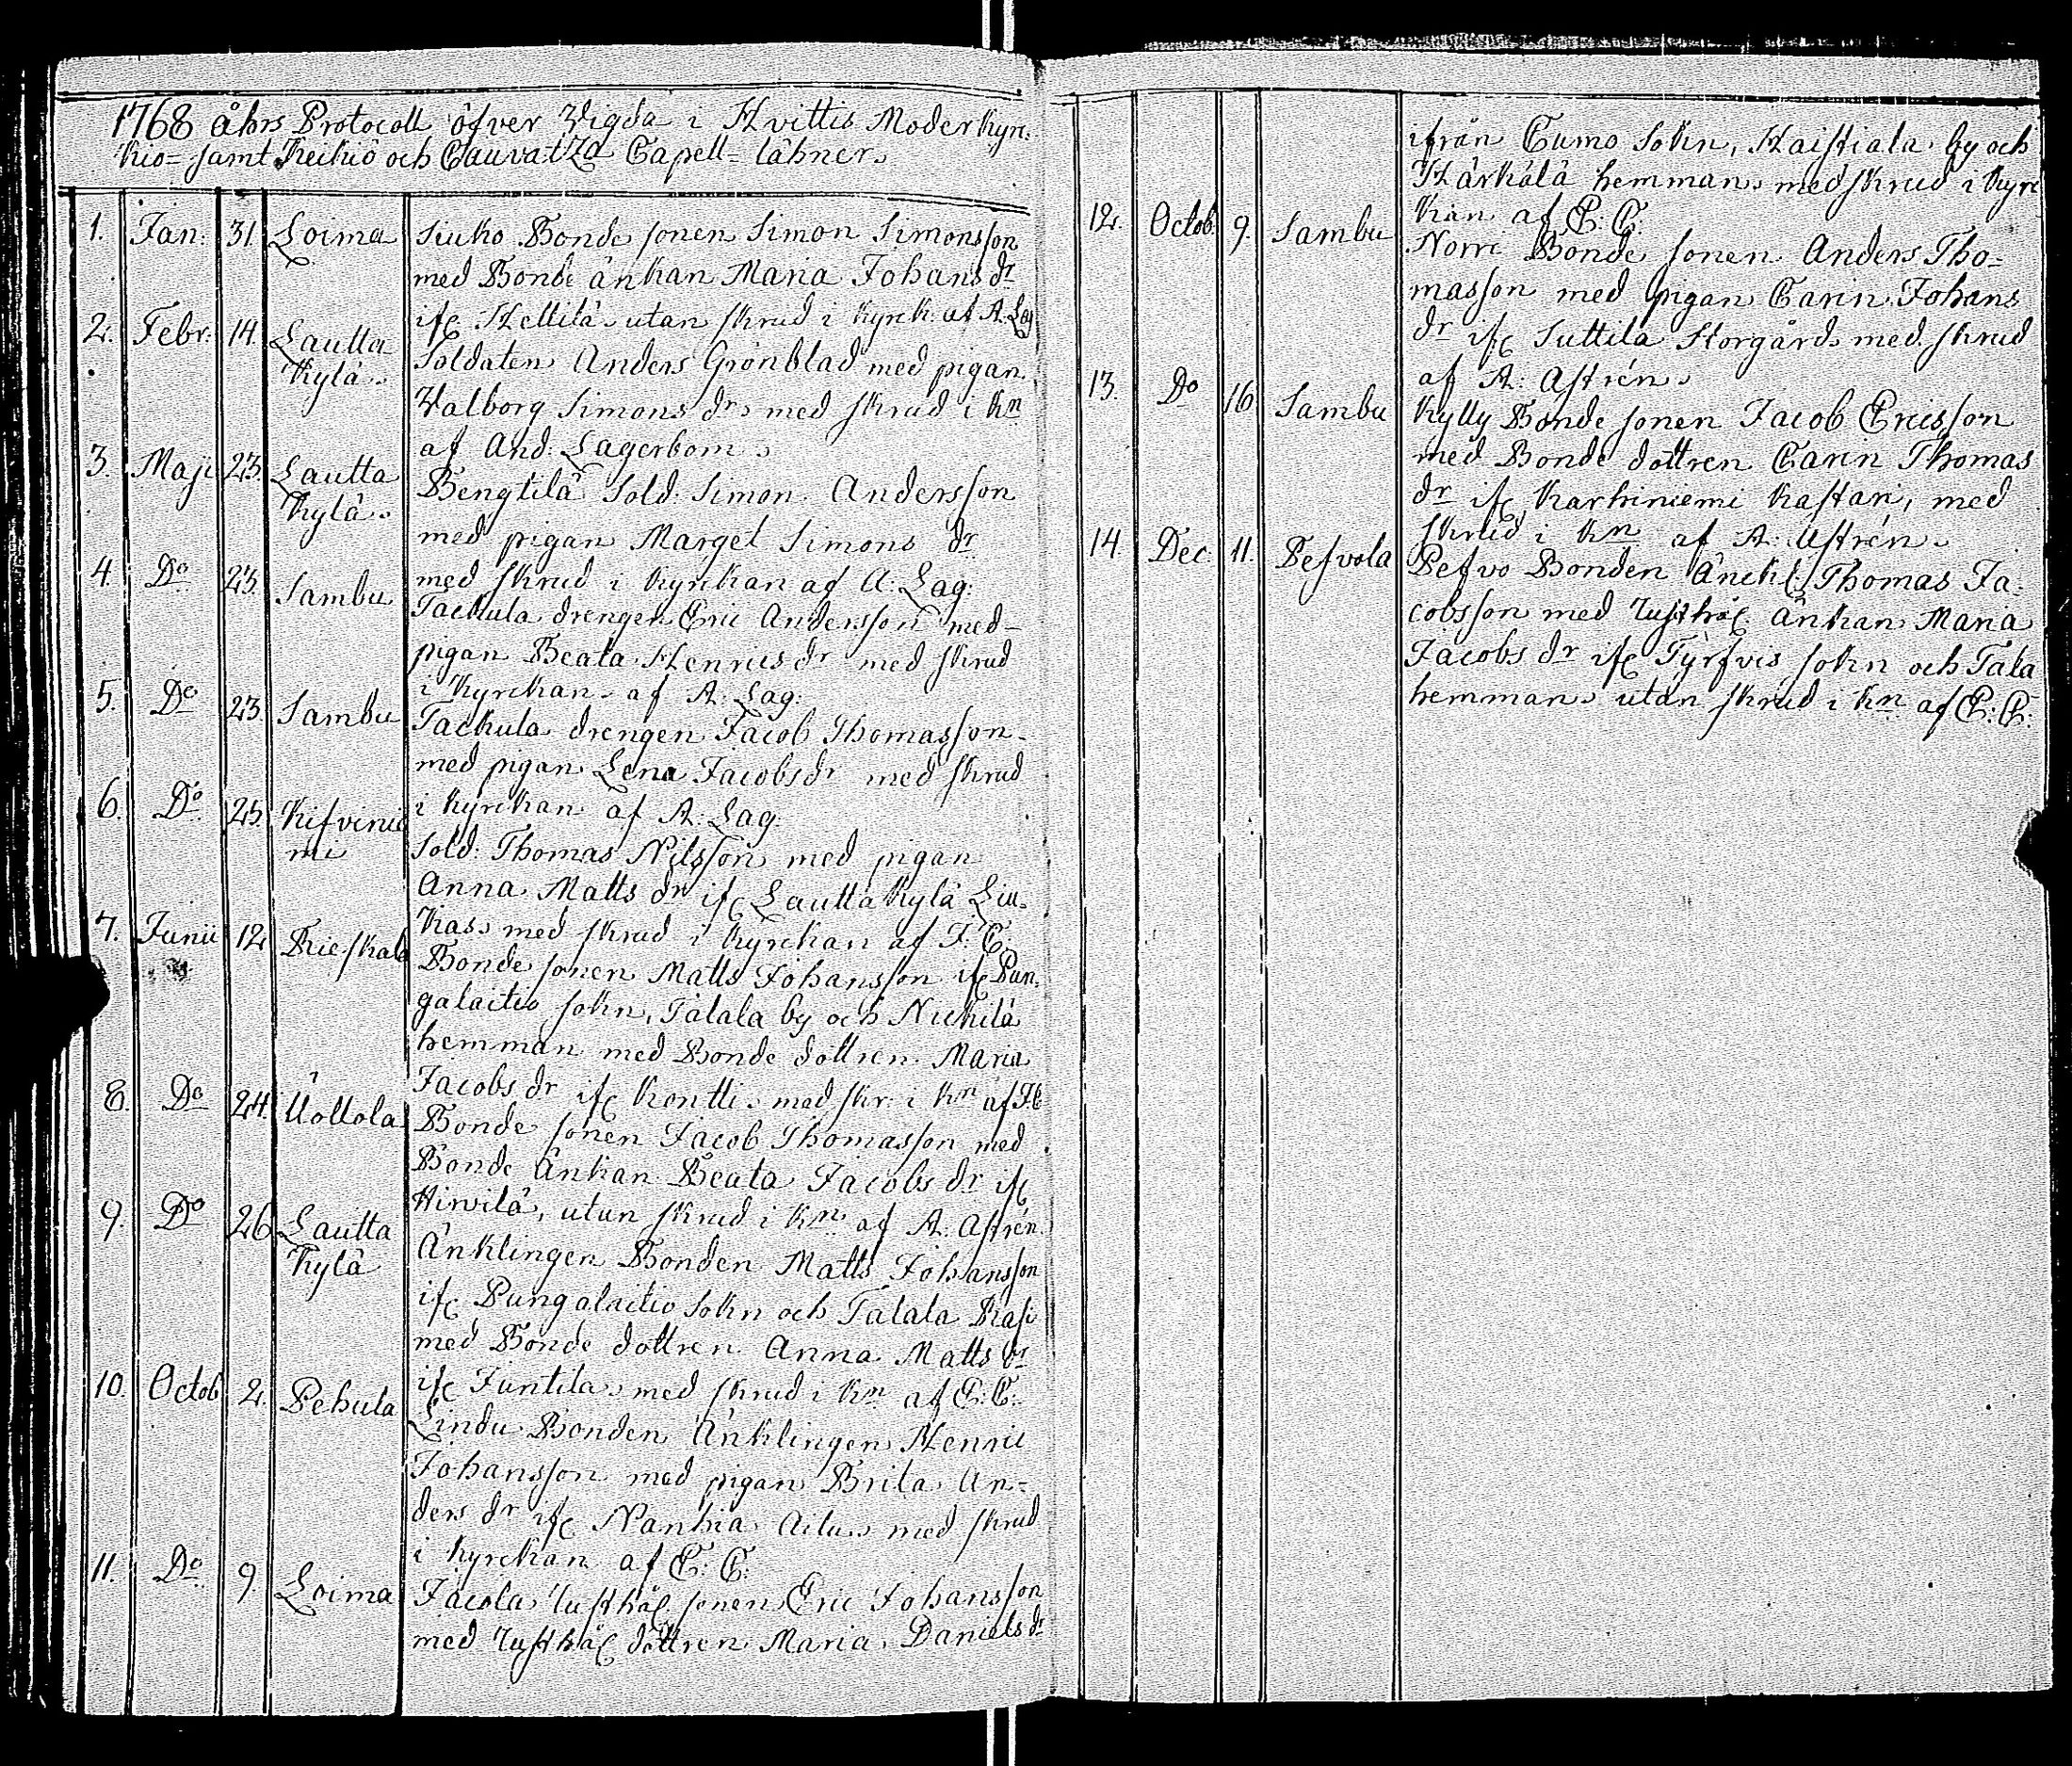 1768 åhrs Protocoll öfver Vigda i Hvittis Moderkyr-
kio- samt Keikiö och Cauvatza Capell-lähner.
1. Jan: 31. Loima Siuko Bonde sonen Simon Simonsson
med Bonde änkan Maria Johans dr
ifr Hellilä utan skrud i kyrck. af A. Lag
2. Febr: 14. Lautta Soldaten Anders Grönblad med pigan
kylä. Valborg Simons dr med skrud i kn
af And: Lagerbom.
3. Maji 23. Lautta Bengtilä Sold. Simon Andersson
kylä. med pigan Marget Simons dr
med skrud i kyrckan af A: Lag:
4. Do 23. Sambu Tackula drengen Eric Andersson med
pigan Beata Henrics dr med skrud
i kyrckan af A: Lag:
5. Do 23. Sambu Tackula drengen Jacob Thomasson
med pigan Lena Jacobs dr med skrud
i kyrckan af A: Lag:
6. Do 25. Kifvinie
mi Sold: Thomas Nilsson med pigan
Anna Matts dr ifr Lauttakylä Liu-
kas med skrud i kyrckan af J: C:
7. Junii 12. Rieskala Bonde sonen Matts Johansson ifr Pun-
galaitio sokn, Talala by och Nickilä
hemman med Bonde dottren Maria
Jacobs dr ifr Kontti med skr: i kn af J:C
8. Do 24. Uottola Bonde sonen Jacob Thomasson med
Bonde Änkan Beata Jacobs dr ifr
Hirvilä, utan skrud i kn af A: Astrén.
9. Do 26 Lautta Änklingen Bonden Matts Johansson
kylä ifr Pungalaitio Sokn och Talala Rasi
med Bonde dottren Anna Matts dr
ifr Juntila med skrud i kn af C: C:
10. Octob 2. Pehula Lindu Bonden Änklingen Henric
Johansson med pigan Brita An-
ders dr ifr Nanhia Ailu med skrud
i kyrckan af C: C:
11. Do 9. Loima Jacola Rusthål. sonen Eric Johansson
med Rusthål dottren Maria Daniels dr
ifrån Cumo Sokn, Haistiala by och
Härkälä hemman med skrud i kyrc
kan af C: C:
12. Octob. 9. Sambu Norri Bonde sonen Anders Tho-
masson med pigan Carin Johans
dr ifr Suttila Storgård med skrud
af A: Astrén.
13. Do 16 Sambu Kylly Bonde sonen Jacob Ericsson
med Bonde dottren Carin Thomas
dr ifr Karhiniemi Kastari, med
skrud i kn af A: Astrén.
14. Dec: 11. Pesvola Pesvo Bonden Änckl: Thomas Ja-
cobsson med Rusthål. änkan Maria
Jacobs dr ifr Tyrfvis sokn och Tala
hemman utan skrud i kn af C: C: